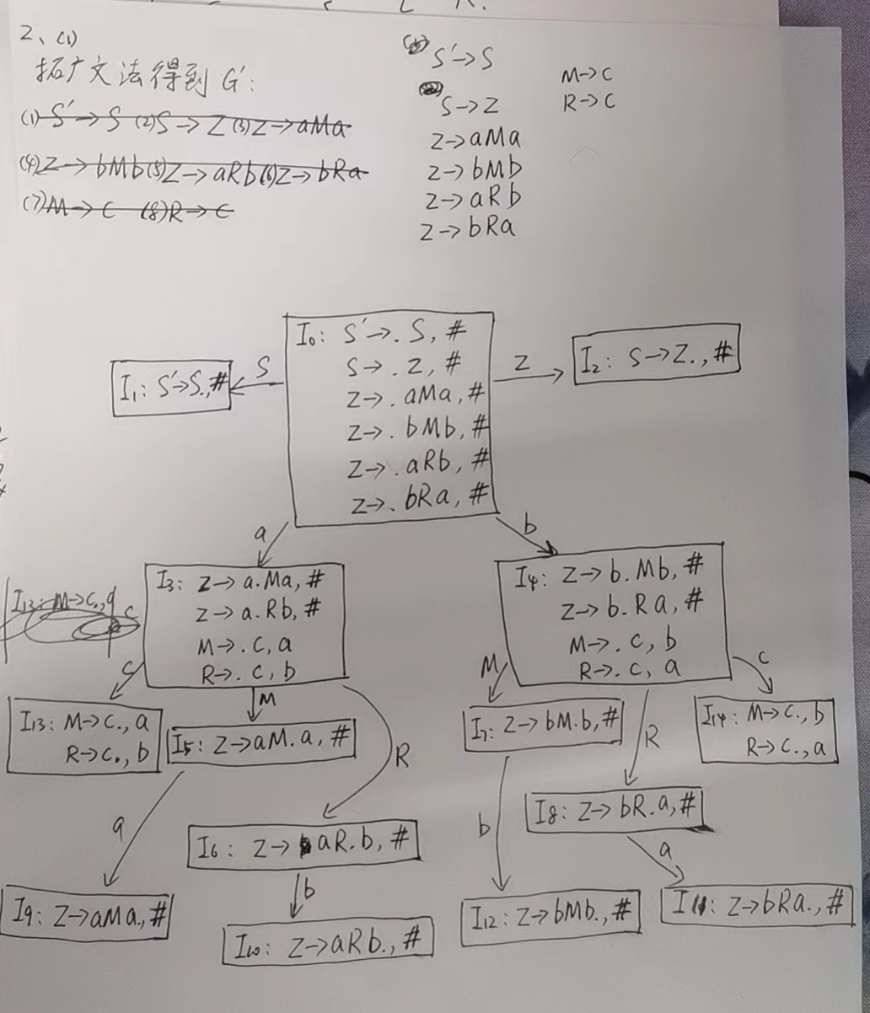 2、(1)
拓广文法得到 G′:
(1) S′→S (2) S→Z (3) Z→aMa
(4) Z→bMb (5) Z→aRb (6) Z→bRa
(7) M→c (8) R→c
S′→S
S→Z
Z→aMa
Z→bMb
Z→aRb
Z→bRa
M→c
R→c
I0: S′→.S, #
S→.Z, #
Z→.aMa, #
Z→.bMb, #
Z→.aRb, #
Z→.bRa, #
S
I1: S′→S., #
Z
I2: S→Z., #
a
b
I3: Z→a.Ma, #
Z→a.Rb, #
M→.c, a
R→.c, b
I4: Z→b.Mb, #
Z→b.Ra, #
M→.c, b
R→.c, a
I13: M→c., a
c
c
M
R
M
R
c
I13: M→c., a
R→c., b
I5: Z→aM.a, #
I7: Z→bM.b, #
I14: M→c., b
R→c., a
a
I6: Z→aR.b, #
b
b
I8: Z→bR.a, #
a
I9: Z→aMa., #
I10: Z→aRb., #
I12: Z→bMb., #
I11: Z→bRa., #